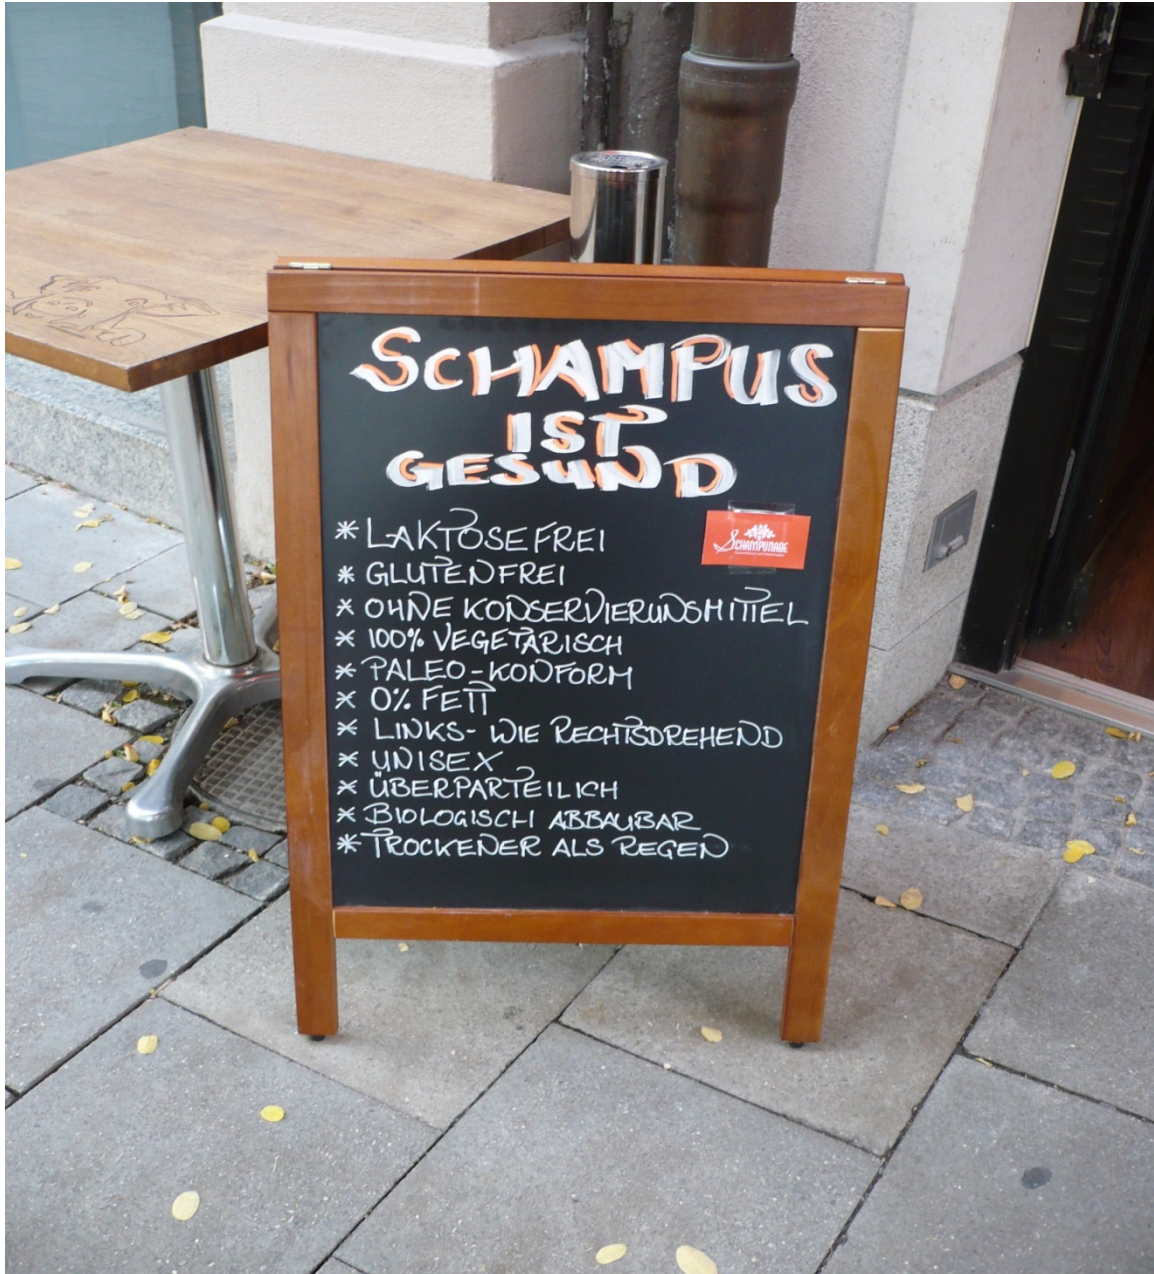 SCHAMPUS
IST
GESUND
* LAKTOSEFREI
SCHAMPUNADE
* GLUTENFREI
* OHNE KONSERVIERUNSMITTEL
* 100% VEGETARISCH
* PALEO-KONFORM
* 0% FETT
* LINKS- WIE RECHTSDREHEND
* UNISEX
* ÜBERPARTEILICH
* BIOLOGISCH ABBAUBAR
* TROCKENER ALS REGEN